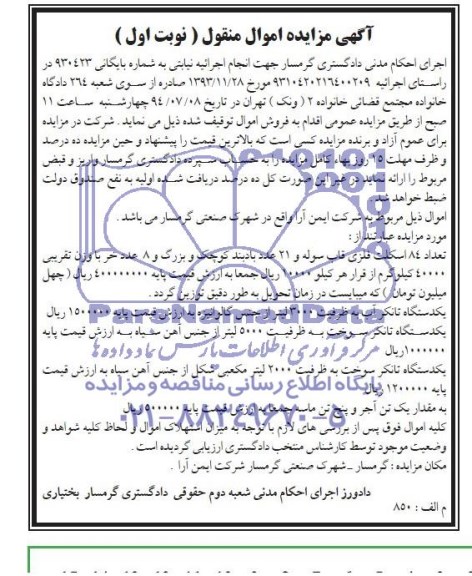 آگهی مزایده اموال منقول ( نوبت اول )
اجرای احکام مدنی دادگستری گرمسار جهت انجام اجرائیه نیابتی به شماره بایگانی ۹۳۰۴۲۳ در
راستای اجرائیه ۹۳۱۰۴۲۰۲۱۶۴۰۰۲۰۹ مورخ ۱۳۹۳/۱۱/۲۸ صادره از سوی شعبه ۲۶۴ دادگاه
خانواده مجتمع قضائی خانواده ۲ ( ونک ) تهران در تاریخ ۹۴/۰۷/۰۸ چهارشنبه ساعت ۱۱
صبح از طریق مزایده عمومی اقدام به فروش اموال توقیف شده ذیل می نماید . شرکت در مزایده
برای عموم آزاد و برنده مزایده کسی است که بالاترین قیمت را پیشنهاد و حین مزایده ده درصد
و ظرف مهلت ۱۵ روز بهاء کامل مزایده را به حساب سپرده دادگستری گرمسار واریز و قبض
مربوط را ارائه نماید در غیر این صورت کل ده درصد دریافت شده اولیه به نفع صندوق دولت
ضبط خواهد شد .
اموال ذیل مربوط به شرکت ایمن آرا واقع در شهرک صنعتی گرمسار می باشد .
مورد مزایده عبارتند از :
تعداد ۸۴ اسکلت فلزی قاب سوله و ۲۱ عدد بادبند کوچک و بزرگ و ۸ عدد خر با وزن تقریبی
۴۰۰۰۰ کیلوگرم از قرار هر کیلو ۱۰۰۰۰ ریال جمعا به ارزش قیمت پایه ۴۰۰۰۰۰۰۰۰ ریال ( چهل
میلیون تومان ) که میبایست در زمان تحویل به طور دقیق توزین گردد .
یکدستگاه تانکر آب به ظرفیت ۳۰۰۰ لیتر از جنس گالوانیزه به ارزش قیمت پایه ۱۵۰۰۰۰۰ ریال
یکدستگاه تانکر سوخت به ظرفیت ۵۰۰۰ لیتر از جنس آهن سیاه به ارزش قیمت پایه
ریال
یکدستگاه تانکر سوخت به ظرفیت ۲۰۰۰ لیتر مکعبی شکل از جنس آهن سیاه به ارزش قیمت
پایه ۱۲۰۰۰۰۰ ریال
به مقدار یک تن آجر و پنج تن ماسه جمعا به ارزش قیمت پایه ۵۰۰۰۰۰ ریال
کلیه اموال فوق پس از بررسی های لازم با توجه به میزان استهلاک اموال و لحاظ کلیه شواهد و
وضعیت موجود توسط کارشناس منتخب دادگستری ارزیابی گردیده است .
مکان مزایده : گرمسار - شهرک صنعتی گرمسار شرکت ایمن آرا .
دادورز اجرای احکام مدنی شعبه دوم حقوقی دادگستری گرمسار بختیاری
م الف : ۸۵۰
مرکز فرآوری اطلاعات پارس نماد داده ها
پایگاه اطلاع رسانی مناقصه و مزایده
۰۲۱-۸۸۳۴۹۶۷۰-۵